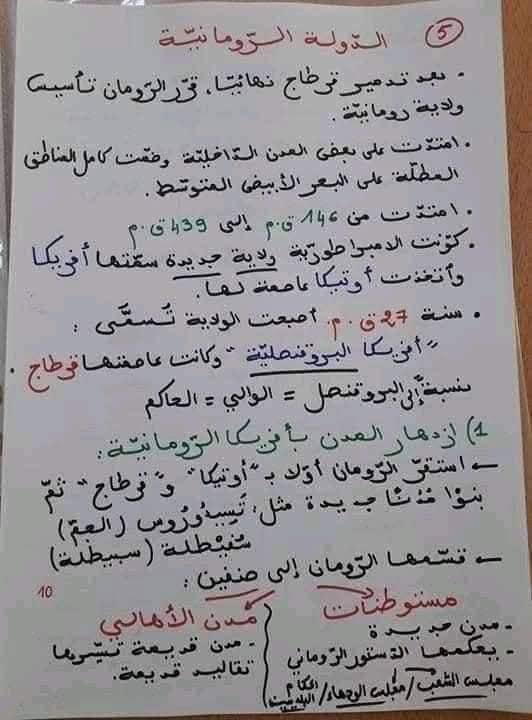 5
الدّولة الرّومانيّة
. بعد تدمير قرطاج نهائيّا، قرّر الرّومان تأسيس
ولاية رومانيّة.
. امتدّت على بعض المدن الدّاخليّة وضمّت كامل المناطق
المطلّة على البحر الأبيض المتوسّط.
. امتدّت من 146 ق.م إلى 439 ق.م
. كوّنت الامبراطوريّة ولاية جديدة سمّتها أفريكا
وأتّخذت أوتيكا عاصمة لها.
. سنة 27 ق.م. أصبحت الولاية تُسمَّى :
"أفريكا البروقنصليّة" وكانت عاصمتها قرطاج .
نسبة إلى البروقنصل = الوالي = الحاكم
1) ازدهار المدن بأفريكا الرّومانيّة :
← استقرّ الرّومان أوّلا بـ "أوتيكا" و"قرطاج" ثمّ
بنوا مُدنًا جديدة مثل: تَيسِدْرُوس (الجم)
سُفيْطلة (سبيطلة)
← قسّمها الرّومان إلى صنفين :
10
مستوطنات
- مدن جديدة
- يحكمها الدّستور الرّوماني
مجلس الشّعب / مجلس الوجهاء / الحكّام البلديّين
مُدن الأهالي
- مدن قديمة تسيّرها
تقاليد قديمة.